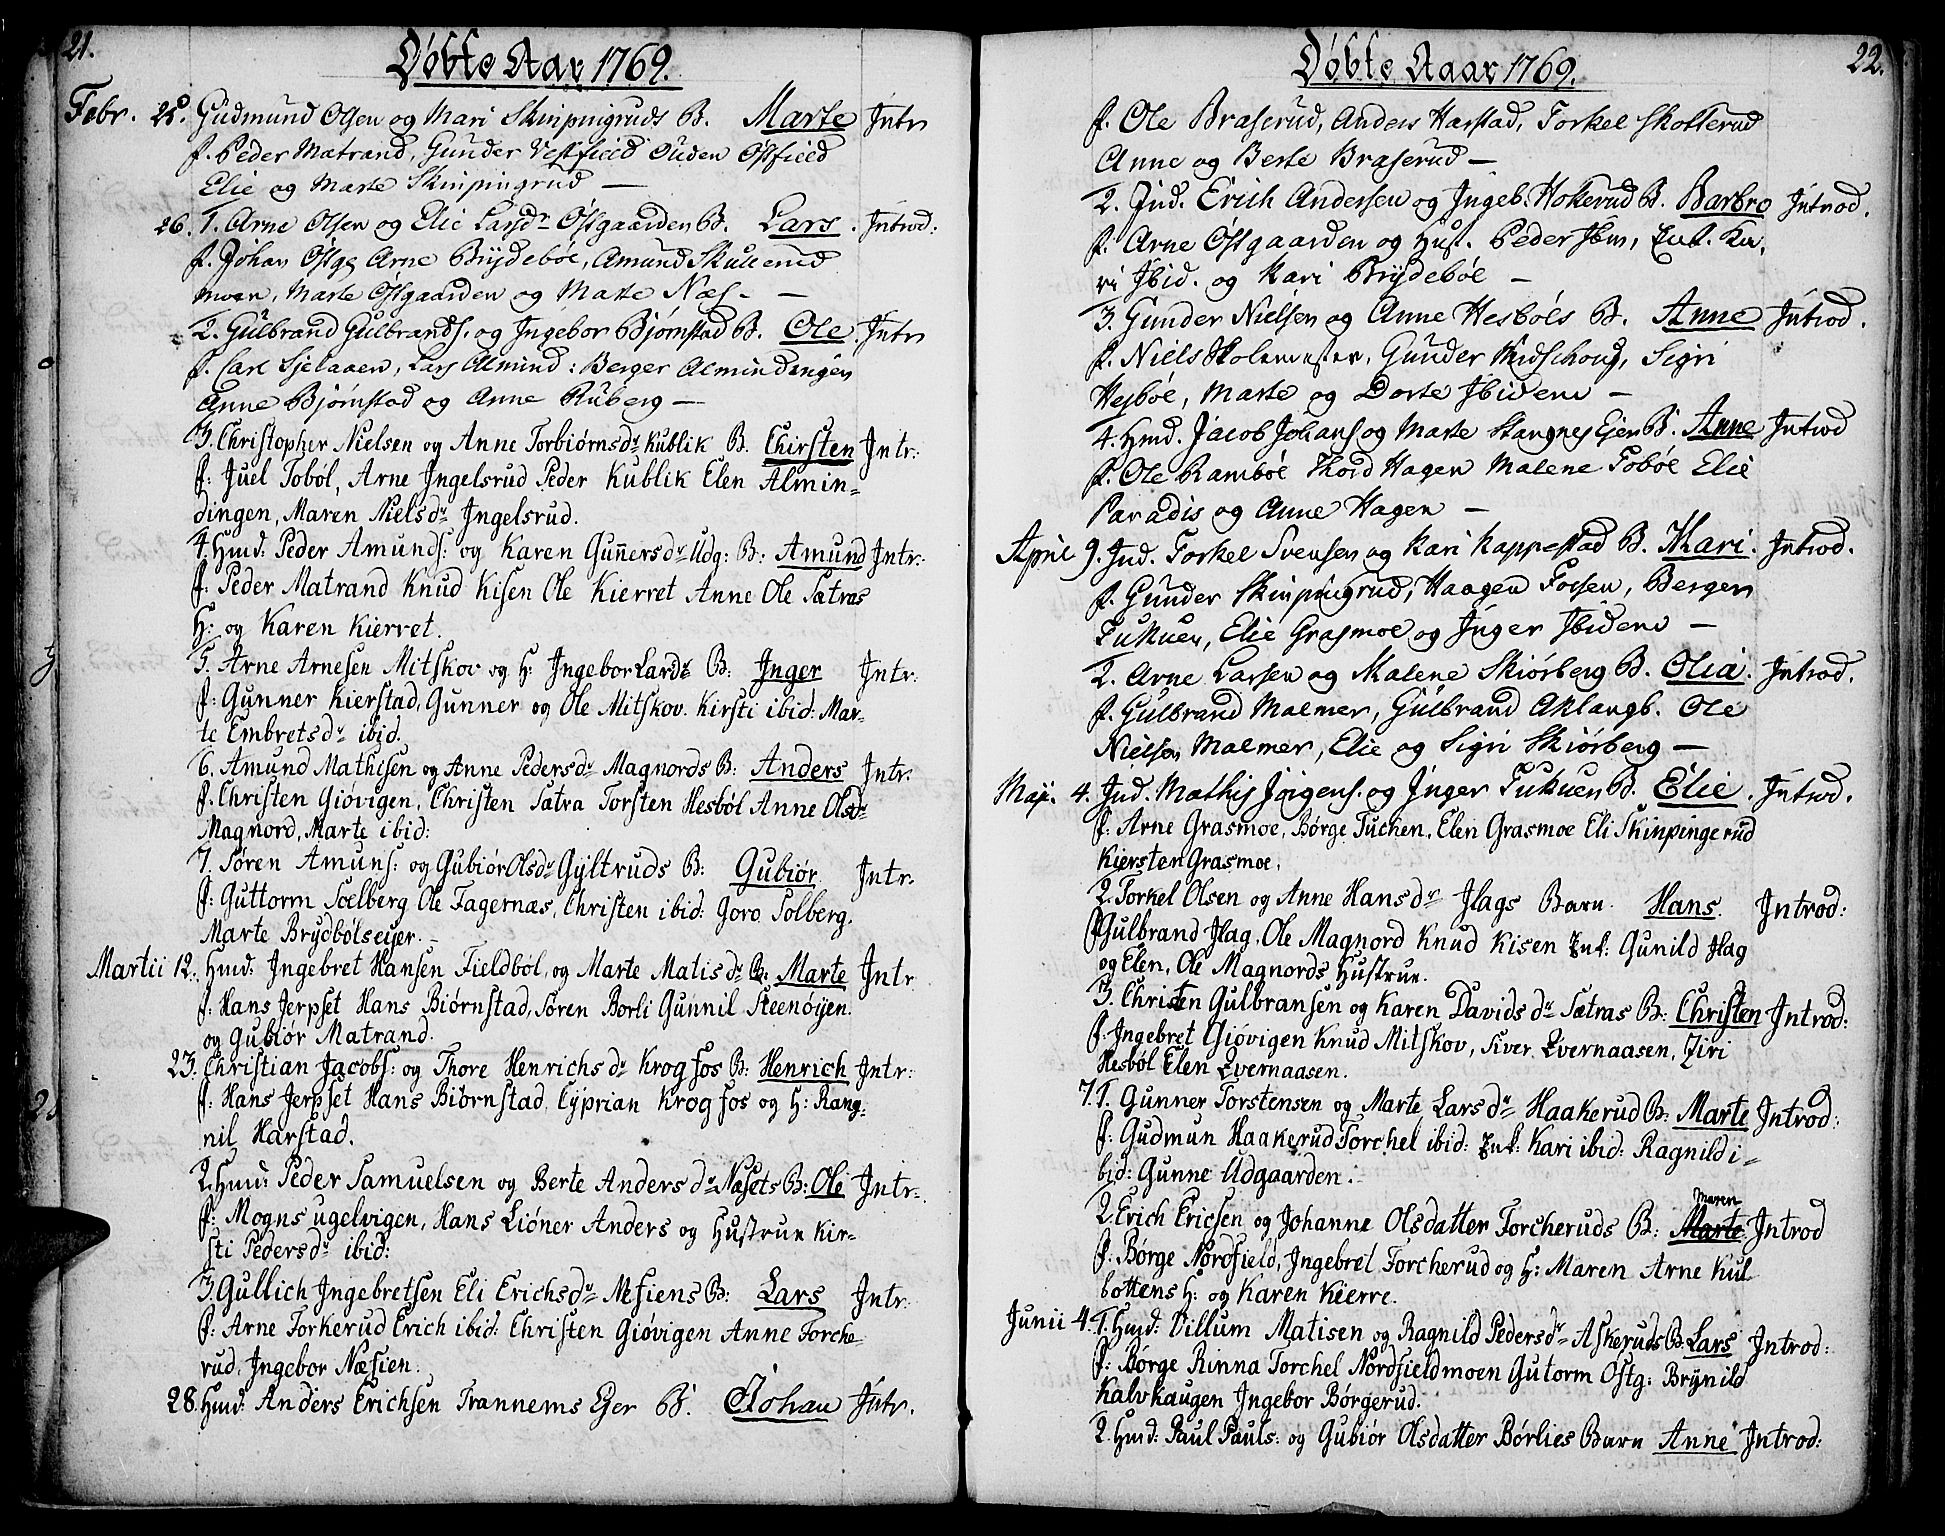 21.
Döbte Aar 1769.
Febr. 25. Gudmund Olsen og Mari Skinpingruds B. Marte Intr
f. Peder Matrand, Gunder Vestfield Ouden Östfield
Elie og Marte Skinpingrud —
26. 1. Arne Olsen og Elie Larsdr Östgaarden B. Lars. Introd:
f. Johan Östg Arne Brÿdeböe, Amund Skullerud
moen, Marte Östgaarden og Marte Næs. —
2. Gulbrand Gulbrands. og Ingebor Björnstad B. Ole. Intr
f. Carl Sjelaaen, Lars Almind: Berger Almindingen
Anne Björnstad og Anne Ruberg —
3. Christopher Nielsen og Anne Torbiörnsdr Kublik B. Chirsten Intr:
f: Juel Toböl, Arne Ingelsrud Peder Kublik Elen Almin=
dingen, Maren Nielsdr Ingelsrud.
4. Hmd: Peder Amunds: og Karen Guñersdr Udg: B: Amund Intr:
f: Peder Matrand Knud Kisen Ole Kierret Anne Ole Sætras
H: og Karen Kierret.
5. Arne Arnesen Mitskov og H: Ingebor Larsdr B: Inger Intr:
f: Gunner Kierstad, Gunner og Ole Mitskov. Kirsti ibid: Mar-
te Embretsdr ibid.
6. Amund Mathisen og Anne Pedersdr Magnords B: Anders Intr:
f: Christen Giövigen, Christen Satra Torsten Hesböl Anne Olsdr
Magnord, Marte ibid:
7. Sören Amuns: og Gubiör Olsdr Gÿltruds B: Gubiör Intr.
f: Guttorm Soelberg Ole Fagernæs, Christen ibid: Goro Solberg.
Marte Brÿdbölseijer. —
Martii 12. Hmd: Ingebret Hansen Fieldböl, og Marte Matisdr B: Marte Intr
f: Hans Jerpset Hans Biörnstad, Sören Borli Gunnil Steenöijen
og Gubiör Matrand.
23. Christian Jacobs: og Thore Henrichsdr Krogfos B: Henrich Intr:
f: Hans Jerpset Hans Biörnstad, Cÿprian Krogfos og H: Rang=
nil Harstad.
2. Hmd: Peder Samuelsen og Berte Andersdr Næsets B: Ole Intr.
f: Mogns ugelvigen, Hans Liöner Anders og Hustrue Kir=
sti Pedersdr ibid:
3. Gullich Ingebretsen Eli Erichsdr Nesiens B: Lars Intr:
f: Arne Torkerud Erich ibid: Christen Giövigen Anne Torche-
rud. Ingebor Næsien.
28. Hmd: Anders Erichsen Trannems Ejer B. Johan Intr.
22.
Döbte Aaar 1769.
f. Ole Braserud, Anders Harstad, Torkel Skotterud
Anne og Berte Braserud —
2. Ind. Erich Andersen og Ingeb. Hokerud B. Barbro Introd.
f. Arne Östgaarden og Hust. Peder Ibm, Enk. Ka,
ri Ibid. og Kari Brÿdeböe —
3. Gunder Nielsen og Anne Hesböls B. Anne Introd.
f. Niels Skolemester, Gunder Midschoug, Sigri
Hesböe, Marte og Dorte Ibidem —
4. Hmd. Jacob Johans og Marte Stangnes Ejer B. Anne Introd
f. Ole Ramböe Thord Hagen Malene Toböe Elie
Paradis og Anne Hagen —
April 9. Ind. Torkel Svensen og Kari Kappestad B. Kari. Introd.
f. Gunder Skinpingrud, Haagen Fossen, Berger
Tukuen, Elie Grasmoe og Inger Ibidem —
2. Arne Larsen og Malene Skiörberg B. Olia. Introd.
f. Gulbrand Malmer, Gulbrand Aklangb. Ole
Nielsen Malmer, Elie og Sigri Skiörberg —
Maji. 4. Ind. Mathis Jörgens. og Inger Tukuen B. Elie. Introd.
f: Arne Grasmoe, Börge Tuchen, Elen Grasmoe Eli Skinpingerud
Kiersten Grasmoe.
2. Torkel Olsen og Anne Hansdr Ilags Barn. Hans. Introd:
f: Gulbrand Ilag, Ole Magnord Knud Kisen Enk: Gunild Ilag
og Elen, Ole Magnords Hustrue.
3. Christen Gulbransen og Karen Davidsdr Sætras B: Christen Introd:
f. Ingebret Giövigen Knud Mitskov, Siver Evernaasen, Ziri
Hesböl Elen Evernaasen.
7. 1. Gunner Torstensen og Marte Larsdr Haakerud B: Marte Introd:
f: Gudmun Haakerud Torchel ibid: Enk: Kari ibid: Ragnild i=
bid: Gunne Udgaarden:
2. Erich Ericsen og Johanne Olsdatter Torcheruds B: Marte Maren Introd
f: Börge Nordfield, Ingebret Torcherud og H: Maren Arne Kul
bottens H: og Karen Kierre.
Junii 4. 1. Hmd: Villum Matisen og Ragnild Pedersdr Askeruds B: Lars Introd:
f: Börge Rinna Torchel Nordfieldmoen Gutorm Östg: Brÿnild
Kalvhaugen Ingebor Börgerud.
2. Hmd: Paul Pauls: og Gubiör Olsdatter Börlies Barn Anne Introd: